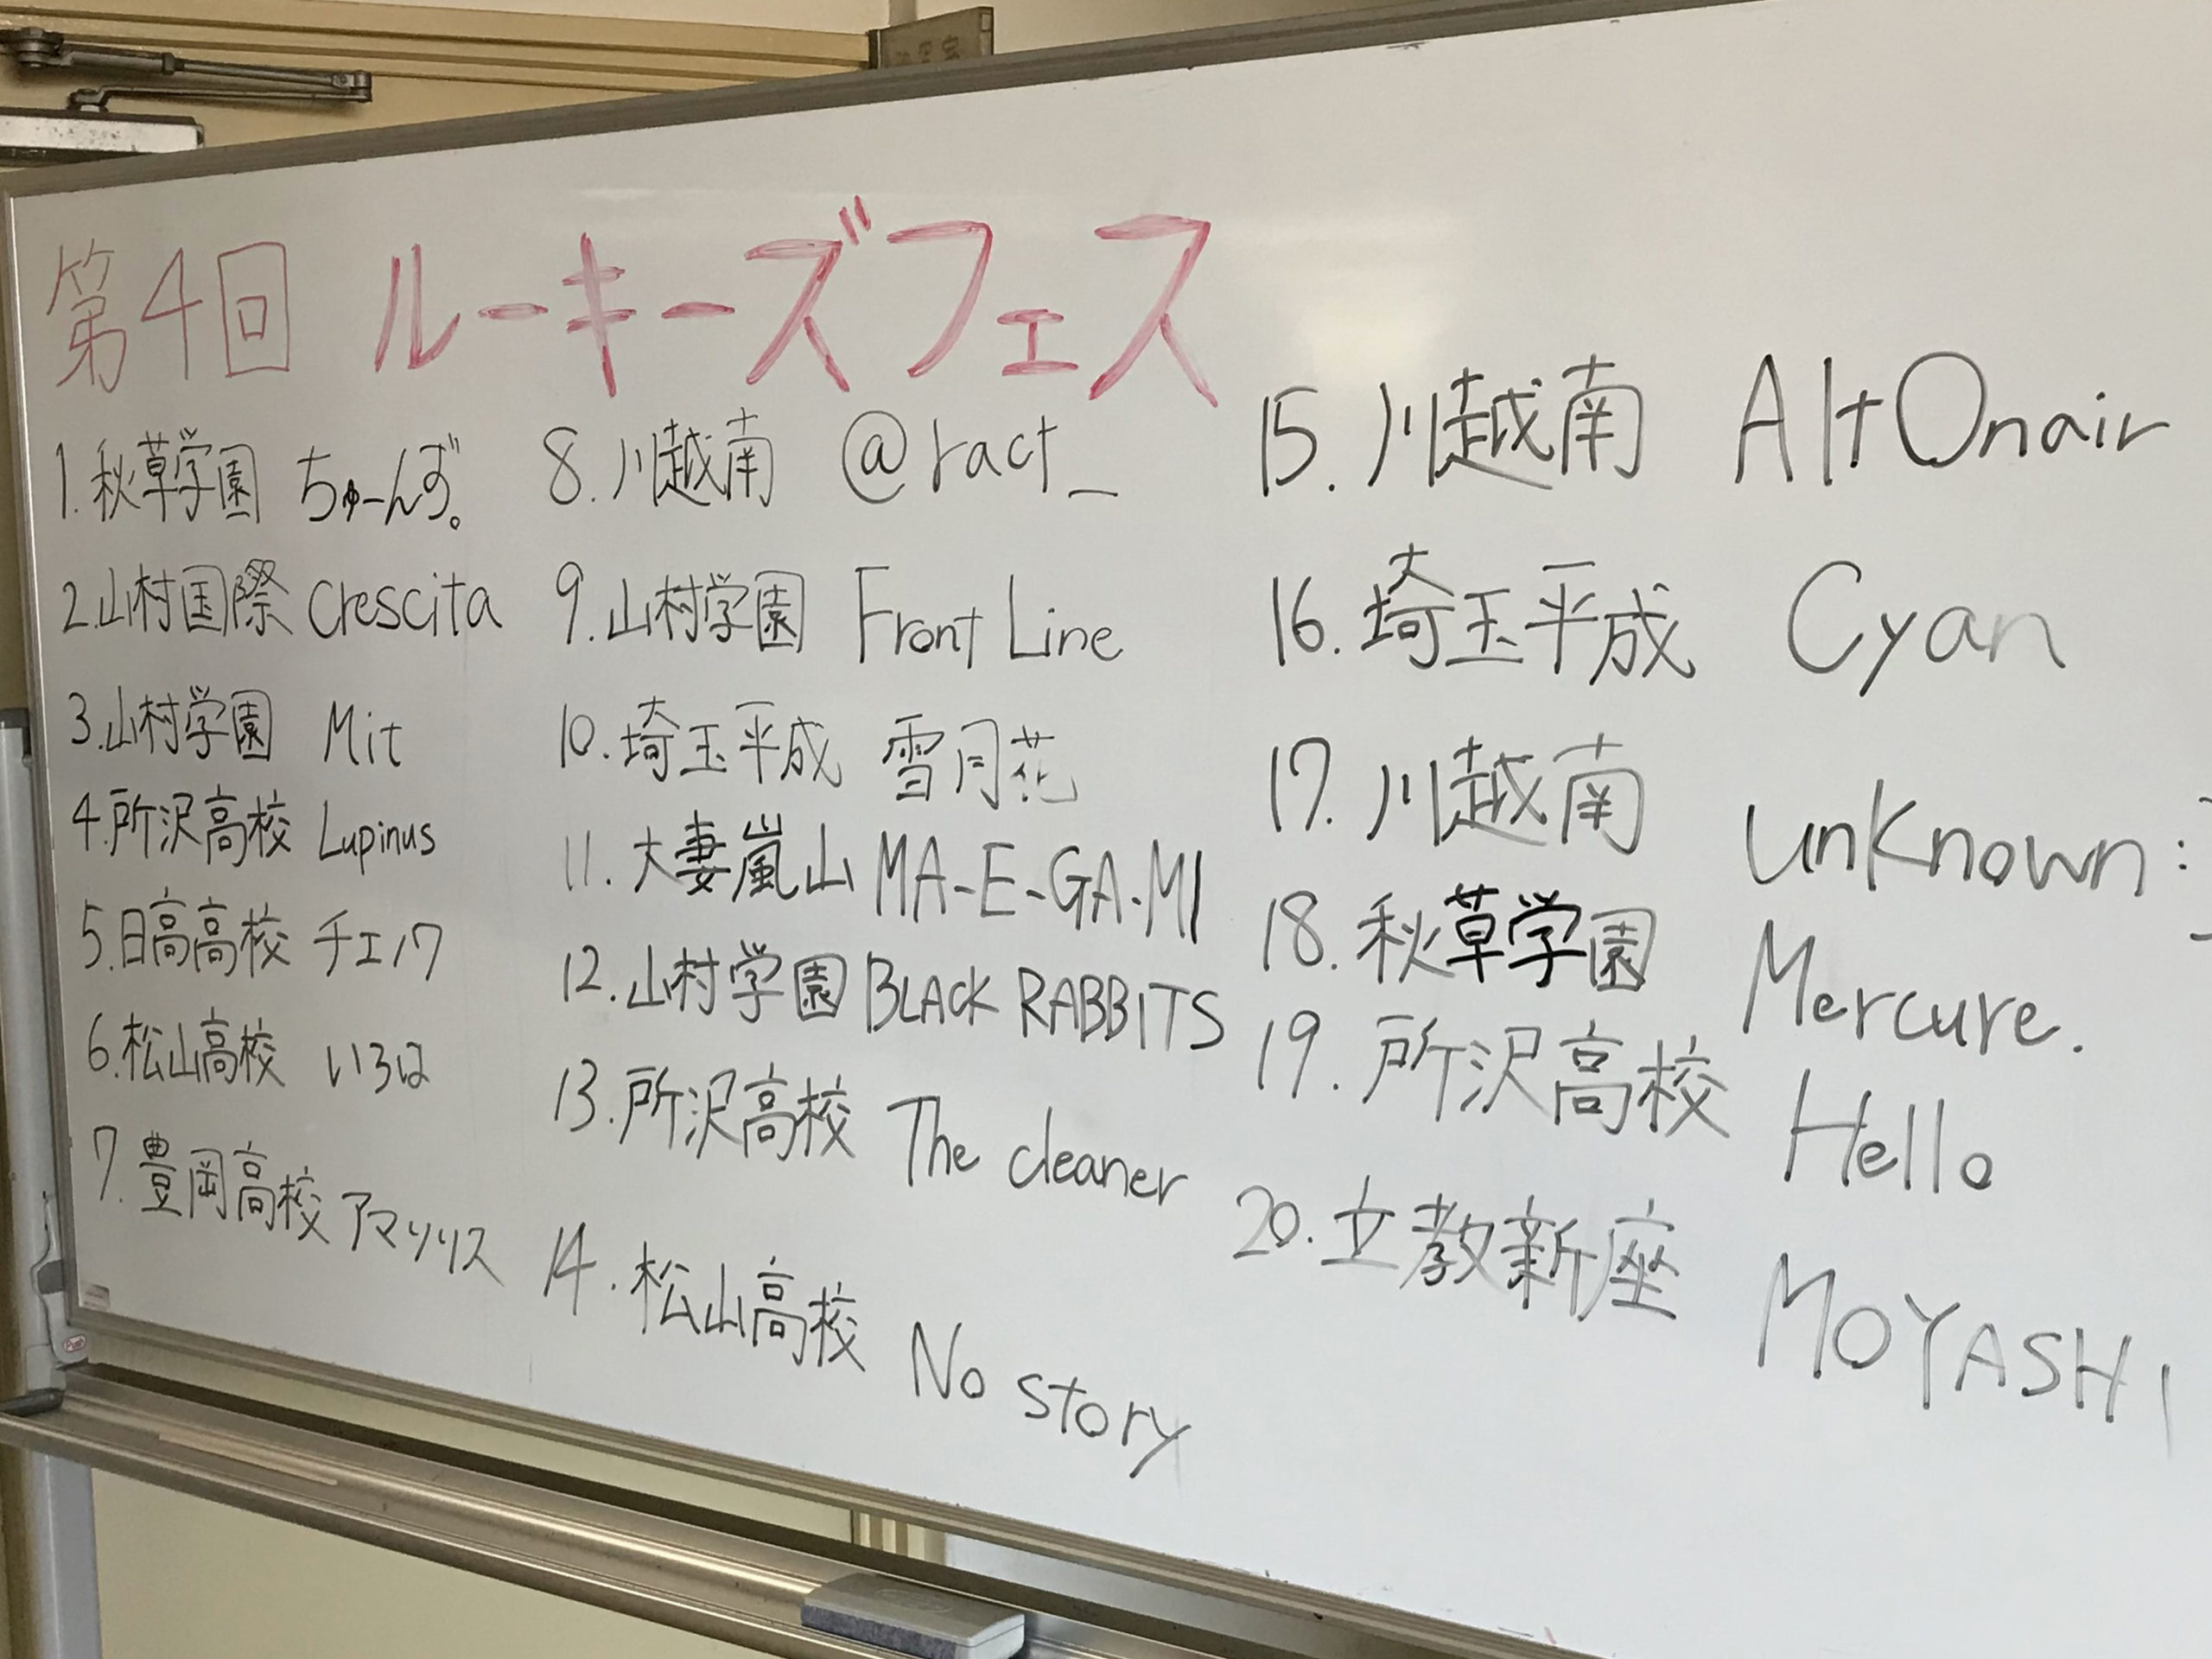 第4回 ルーキーズフェス
1.秋草学園 ちゅーんず。
2.山村国際 Crescita
3.山村学園 Mit
4.所沢高校 Lupinus
5.日高高校 チェノワ
6.松山高校 いろは
7.豊岡高校 アマリリス
8.川越南 @ract_
9.山村学園 Front Line
10.埼玉平成 雪月花
11.大妻嵐山 MA-E-GA-MI
12.山村学園 BLACK RABBITS
13.所沢高校 The cleaner
14.松山高校 No story
15.川越南 AltOnair
16.埼玉平成 Cyan
17.川越南 unknown:
18.秋草学園 Mercure.
19.所沢高校 Hello
20.立教新座 MOYASHI
Push